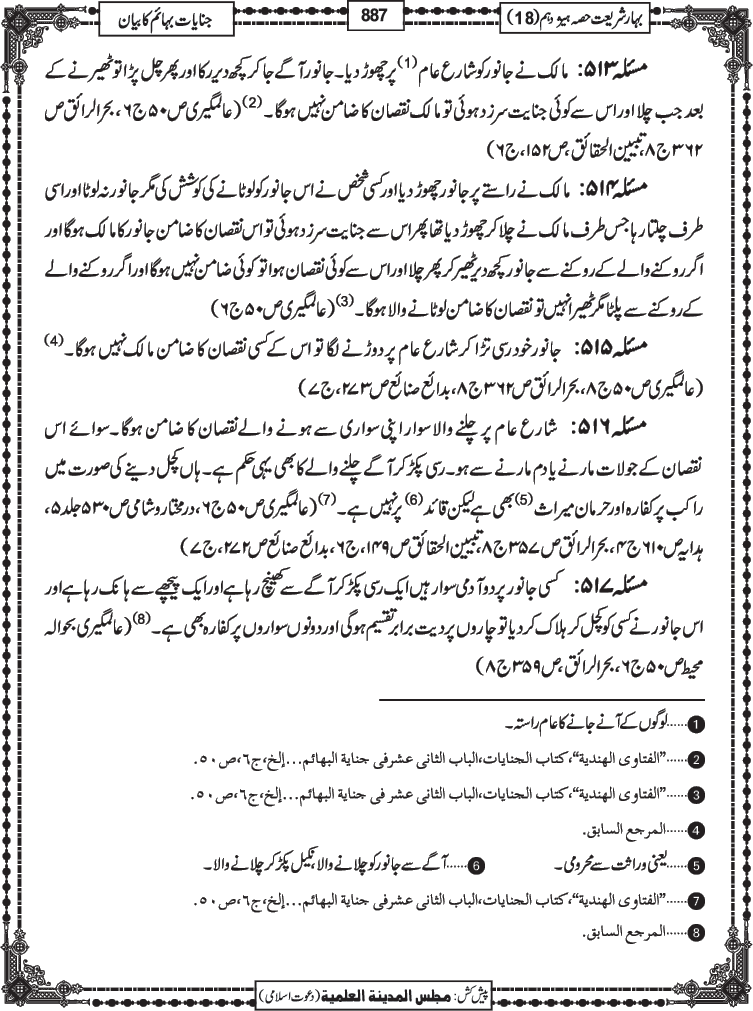 بہار شریعت حصہ ہیژدہم (18)
887
جنایات بہائم کا بیان
مسئلہ ۵۱۳: مالک نے جانور کو شارع عام (1) پر چھوڑ دیا۔ جانور آگے جا کر کچھ دیر رکا اور پھر چل پڑا تو ٹھیرنے کے
بعد جب چلا اور اس سے کوئی جنایت سرزد ہوئی تو مالک نقصان کا ضامن نہیں ہوگا۔ (2) (عالمگیری ص ۵۰ ج ۶، بحر الرائق ص
۳۶۲ ج ۸، تبیین الحقائق، ص ۱۵۲، ج ۶)
مسئلہ ۵۱۴: مالک نے راستے پر جانور چھوڑ دیا اور کسی شخص نے اس جانور کو لوٹانے کی کوشش کی مگر جانور نہ لوٹا اور اسی
طرف چلتا رہا جس طرف مالک نے چلا کر چھوڑ دیا تھا پھر اس سے جنایت سرزد ہوئی تو اس نقصان کا ضامن جانور کا مالک ہوگا اور
اگر روکنے والے کے روکنے سے جانور کچھ دیر ٹھیر کر پھر چلا اور اس سے کوئی نقصان ہوا تو کوئی ضامن نہیں ہوگا اور اگر روکنے والے
کے روکنے سے پلٹا مگر ٹھیرا نہیں تو نقصان کا ضامن لوٹانے والا ہوگا۔ (3) (عالمگیری ص ۵۰ ج ۶)
مسئلہ ۵۱۵: جانور خود رسی تڑا کر شارع عام پر دوڑنے لگا تو اس کے کسی نقصان کا ضامن مالک نہیں ہوگا۔ (4)
(عالمگیری ص ۵۰ ج ۸، بحر الرائق ص ۳۶۲ ج ۸، بدائع صنائع ص ۲۷۳، ج ۷)
مسئلہ ۵۱۶: شارع عام پر چلنے والا سوار اپنی سواری سے ہونے والے نقصان کا ضامن ہوگا۔ سوائے اس
نقصان کے جو لات مارنے یا دم مارنے سے ہو۔ رسی پکڑ کر آگے چلنے والے کا بھی یہی حکم ہے۔ ہاں کچل دینے کی صورت میں
راکب پر کفارہ اور حرمان میراث (5) بھی ہے لیکن قائد (6) پر نہیں ہے۔ (7) (عالمگیری ص ۵۰ ج ۶، درمختار و شامی ص ۵۳۰ جلد ۵،
ہدایہ ص ۶۱۰ ج ۴، بحر الرائق ص ۳۵۷ ج ۸، تبیین الحقائق ص ۱۴۹، ج ۶، بدائع صنائع ص ۲۷۲، ج ۷)
مسئلہ ۵۱۷: کسی جانور پر دو آدمی سوار ہیں ایک رسی پکڑ کر آگے سے کھینچ رہا ہے اور ایک پیچھے سے ہانک رہا ہے اور
اس جانور نے کسی کو کچل کر ہلاک کر دیا تو چاروں پر دیت برابر تقسیم ہوگی اور دونوں سواروں پر کفارہ بھی ہے۔ (8) (عالمگیری بحوالہ
محیط ص ۵۰ ج ۶، بحر الرائق، ص ۳۵۹ ج ۸)
1 ......لوگوں کے آنے جانے کا عام راستہ۔
2 ......"الفتاوی الهندیة"، کتاب الجنایات، الباب الثانی عشر فی جنایة البهائم...إلخ، ج۶، ص۵۰.
3 ......"الفتاوی الهندیة"، کتاب الجنایات، الباب الثانی عشر فی جنایة البهائم...إلخ، ج۶، ص۵۰.
4 ......المرجع السابق.
5 ......یعنی وراثت سے محرومی۔ 6 ......آگے سے جانور کو چلانے والا، نکیل پکڑ کر چلانے والا۔
7 ......"الفتاوی الهندیة"، کتاب الجنایات، الباب الثانی عشر فی جنایة البهائم...إلخ، ج۶، ص۵۰.
8 ......المرجع السابق.
پیش کش: مجلس المدینة العلمیة (دعوت اسلامی)